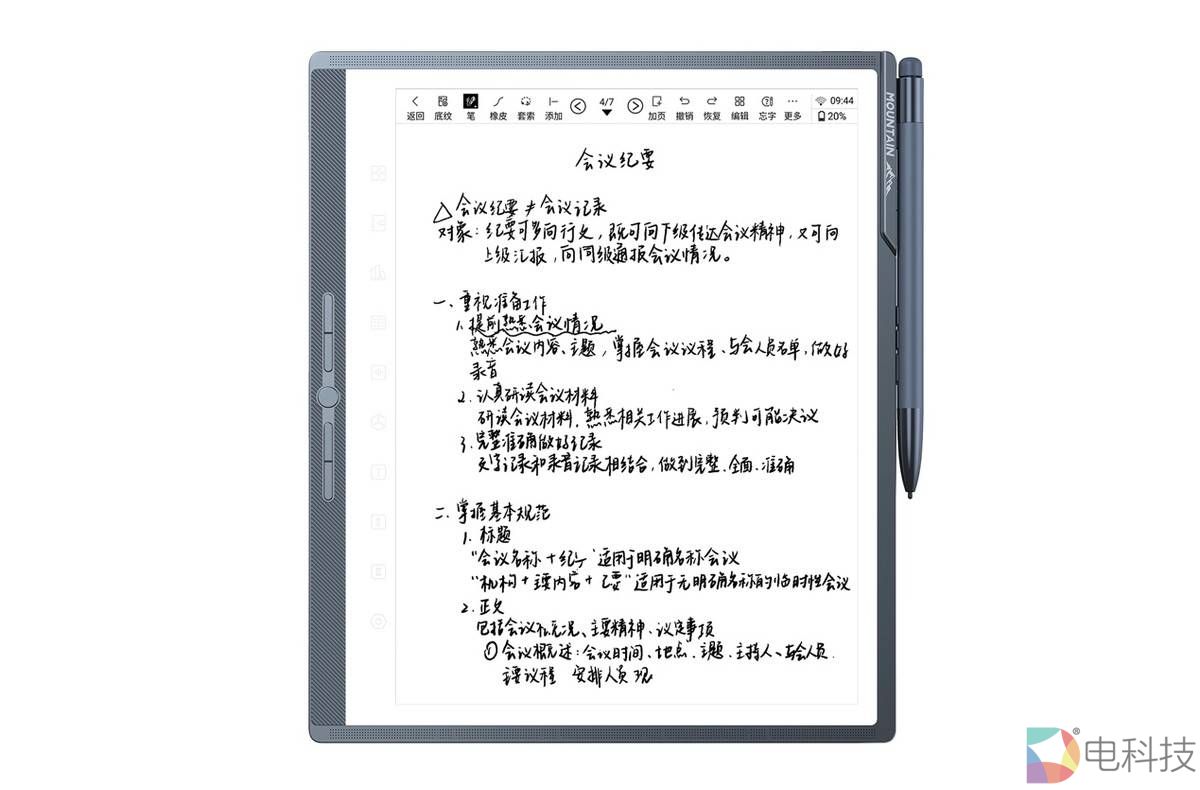 返回 底纹 笔 橡皮 套索 添加 4/7 加页 撤销 恢复 编辑 忘字 更多 09:44
20%
会议纪要
△会议纪要≠会议记录
对象：纪要可多向行文，既可向下级传达会议精神，又可向
上级汇报，向同级通报会议情况。
一、重视准备工作
1.提前熟悉会议情况
熟悉会议内容、主题，掌握会议议程、与会人员名单，做好
录音
2.认真研读会议材料
研读会议材料，熟悉相关工作进展，预判可能决议
3.完整准确做好记录
文字记录和录音记录相结合，做到完整、全面、准确
二、掌握基本规范
1.标题
“会议名称+纪”适用于明确名称会议
“机构+主要内容+要”适用于无明确名称的临时性会议
2.正文
包括会议概况、主要精神、议定事项
①会议概述：会议时间、地点、主题、主持人、与会人员
主要议程 安排人员 现
MOUNTAIN
®电科技